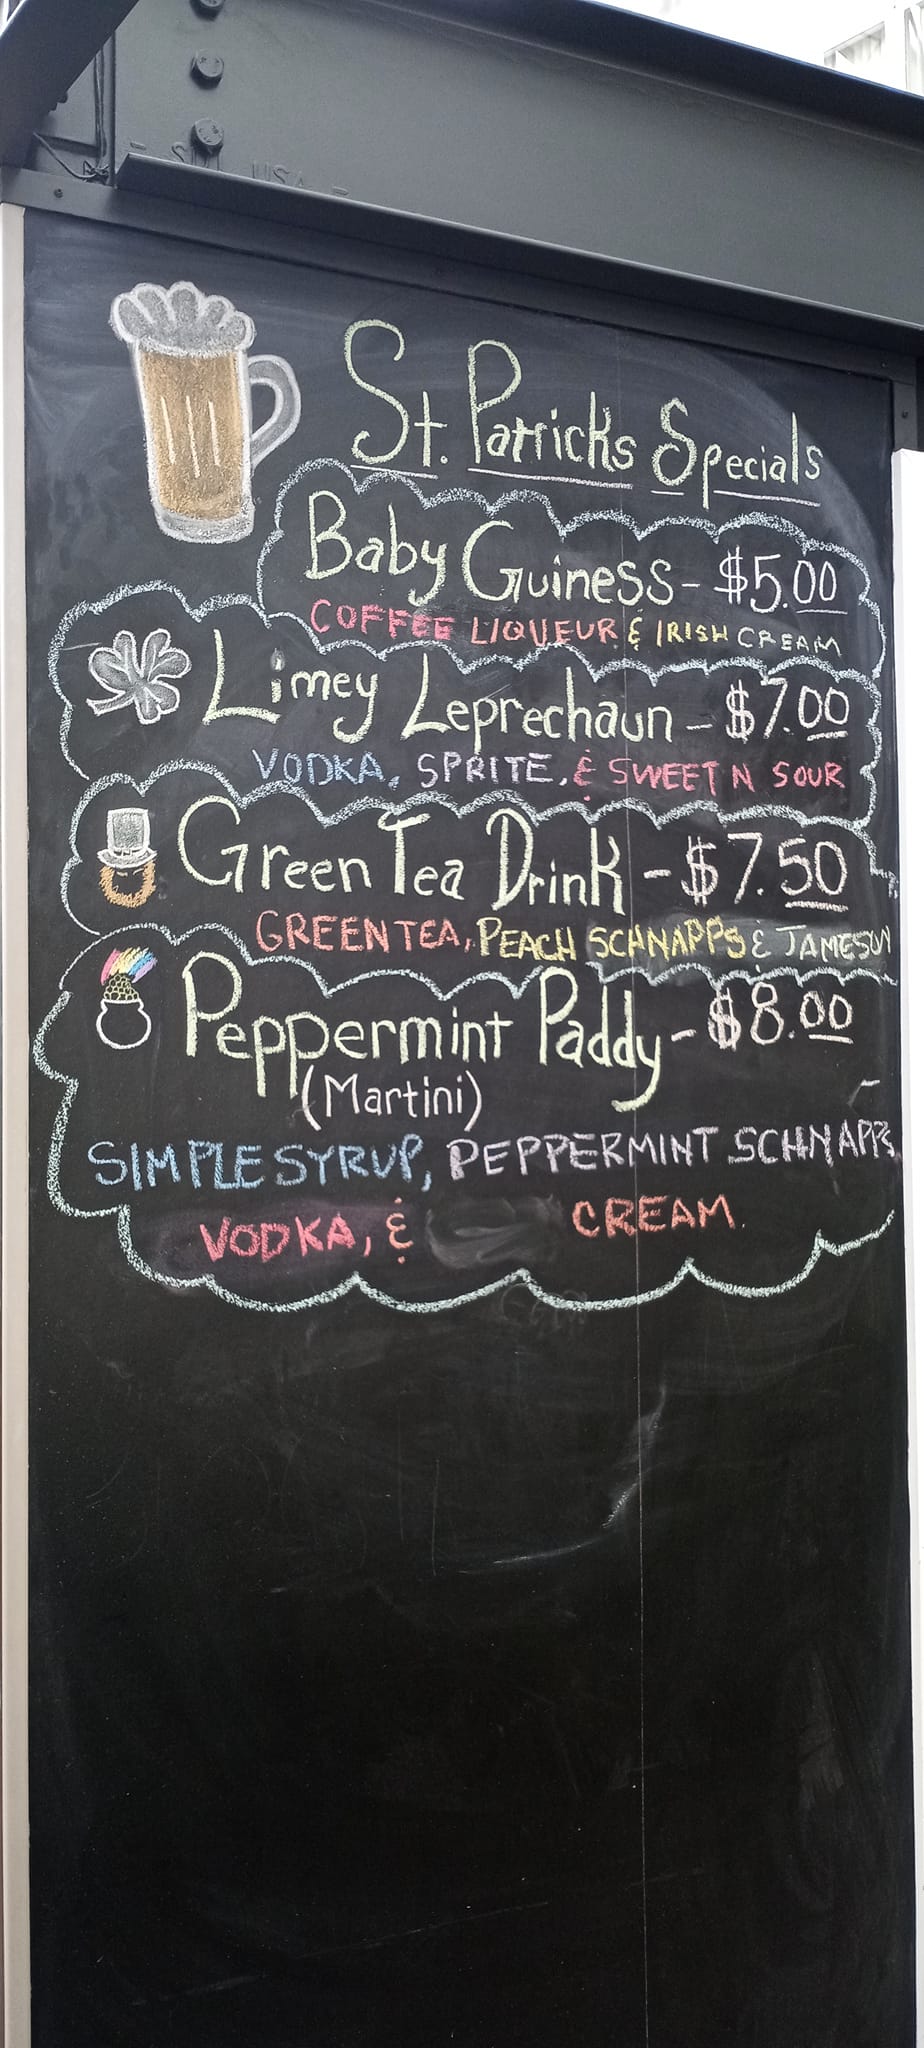 St. Patricks Specials
Baby Guiness - $5.00
COFFEE LIQUEUR & IRISH CREAM
Limey Leprechaun - $7.00
VODKA, SPRITE, & SWEET N SOUR
Green Tea Drink - $7.50
GREEN TEA, PEACH SCHNAPPS & JAMESON
Peppermint Paddy - $8.00
(Martini)
SIMPLE SYRUP, PEPPERMINT SCHNAPPS,
VODKA, & CREAM.